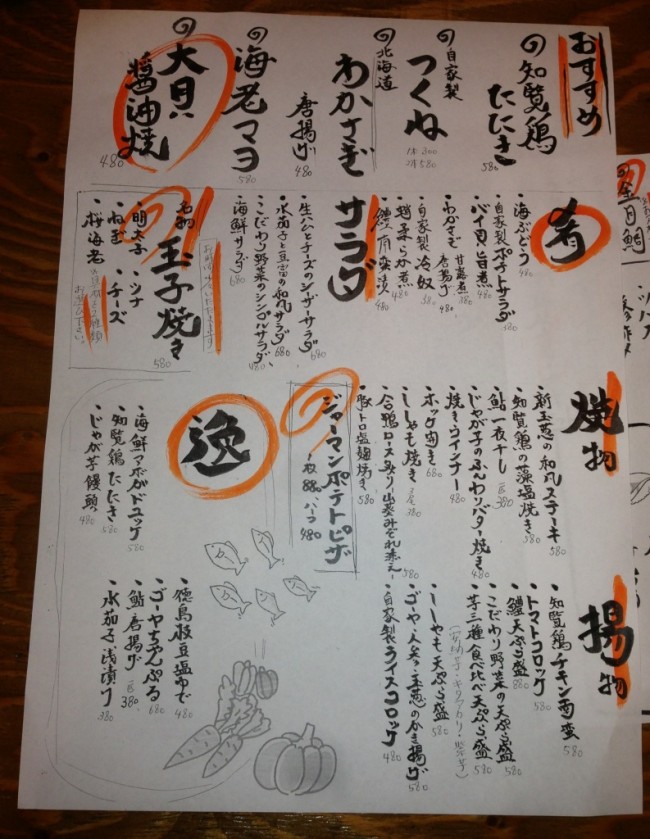 おすすめ
知覧鶏
たたき
580
自家製
つくね
1本 300
2本 580
北海道
わかさぎ
唐揚げ
480
海老マヨ
580
大貝
醤油焼
480
肴
・海ぶどう
480
・自家製ポテトサラダ
380
・バイ貝旨煮
480
・わかさぎ甘露煮
380
・わかさぎ唐揚げ
480
・自家製冷奴
380
・蛸柔らか煮
480
480
サラダ
・生ハムとチーズのシーザーサラダ
680
・水茄子と豆富の和風サラダ
680
・こだわり野菜のシンプルサラダ
480
・海鮮サラダ
680
名物
玉子焼き
580
・明太子
・ツナ
・ねぎ
・チーズ
・桜海老
焼物
・新玉葱の和風ステーキ
580
・知覧鶏の藻塩焼き
580
・鮎一夜干し
380
・じゃが子のふんわりバター焼き
480
・焼きウインナー
480
・ホッケ焼き
680
・ししゃも焼き
380
・合鴨ロース炙り山葵みぞれ添え
580
・豚トロ塩麹焼き
580
ジャーマンポテトピザ
一枚 880 ハーフ 480
逸
・海鮮アボカドユッケ
580
・知覧鶏たたき
580
・じゃが芋饅頭
480
揚物
・知覧鶏チキン南蛮
580
・トマトコロッケ
580
・鱧天ぷら盛
880
・こだわり野菜の天ぷら盛
580
・芋三種食べ比べ天ぷら盛
580
・ししゃも天ぷら盛
・ゴーヤ・人参・玉葱のかき揚げ
580
・自家製ライスコロッケ
480
・徳島枝豆塩ゆで
480
・ゴーヤちゃんぷる
680
・鮎唐揚げ
380
・水茄子浅漬け
380
金目鯛